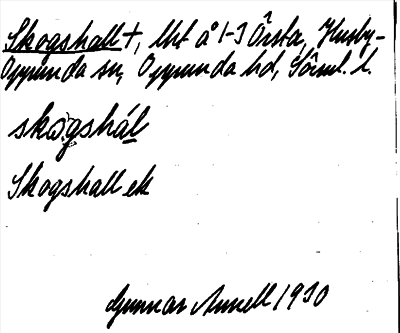 Skogshall †, lht å 1-3 Örsta, Husby-
Oppunda sn, Oppunda hd, Söml. l.
skω:gshál
Skogshall ek
Gunnar Annell 1930